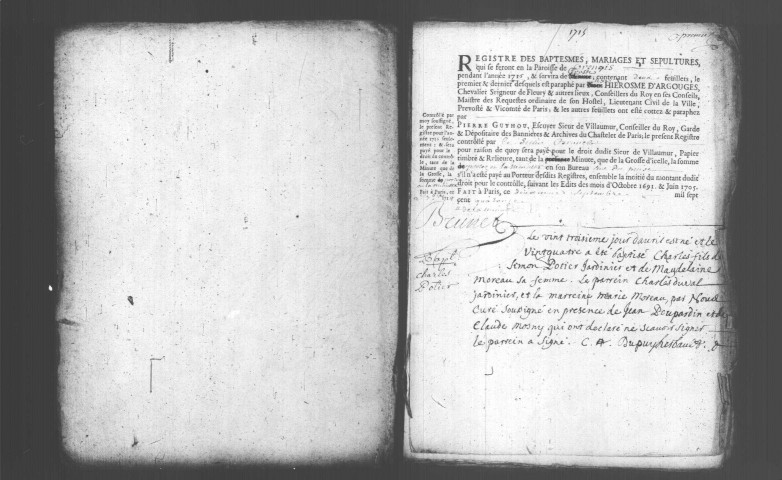 1715
premier
REGISTRE DES BAPTESMES, MARIAGES ET SEPULTURES,
qui se feront en la Paroisse de
pendant l'année 1715, & servira de Minutte, contenant deux feuillets, le
premier & dernier desquels est paraphé par HIEROSME D'ARGOUGES,
Chevalier Seigneur de Fleury & autres lieux, Conseillers du Roy en ses Conseils,
Maistre des Requestes ordinaire de son Hostel, Lieutenant Civil de la Ville,
Prevosté & Vicomté de Paris; & les autres feuillets ont esté cottez & paraphez
par
PIERRE GUYHOU, Escuyer Sieur de Villaumur, Conseiller du Roy, Garde
& Dépositaire des Bannieres & Archives du Chastelet de Paris; le present Registre
controllé par
pour raison de quoy sera payé pour le droit dudit Sieur de Villaumur, Papier
timbré & Relieure, tant de la Minute, que de la Grosse d'icelle, la somme
en son Bureau
s'il n'a esté payé au Porteur desdits Registres, ensemble la moitié du montant dudit
droit pour le controlle, suivant les Edits des mois d'Octobre 1691. & Juin 1705.
FAIT à Paris, ce mil sept
cent quatorze
Controllé par
moy soussigné,
le present Registre
pour l'année
1715
& sera
payé pour le
droit de controlle,
tant de la
Minute que
de la Grosse, la
somme de
Fait à Paris, ce
Brunet
Bapt
Charles
Potier
Le vint troisieme jour d'avril est né et le
vintquatre a été baptisé Charles fils de
Simon Potier Jardinier et de Maudelaine
Moreau sa femme. Le parrein Charles duval
Jardinier, et la marreine marie Moreau, par Nous
Curé Sousigné en presence de Jean Deupardin et de
Claude Mosny qui ont declaré ne scavoir signer
le parrein a signé. C. A.